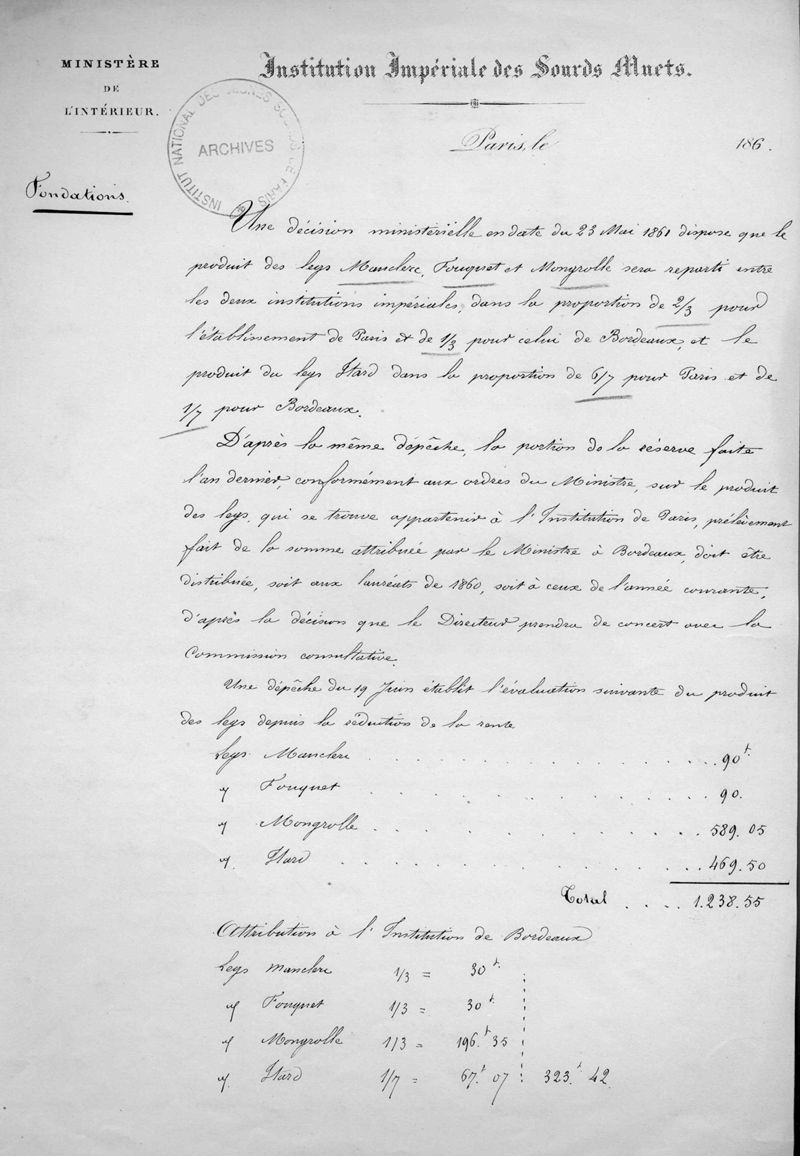 MINISTÈRE
DE
L'INTÉRIEUR.
Institution Impériale des Sourds Muets.
INSTITUT NATIONAL DES JEUNES SOURDS DE PARIS
ARCHIVES
Paris, le 186 .
Fondations.
Une décision ministérielle en date du 23 Mai 1861 dispose que le
produit des legs Manclerc, Fouquet et Mongrolle sera reparti entre
les deux institutions impériales, dans la proportion de 2/3 pour
l'établissement de Paris et de 1/3 pour celui de Bordeaux, et le
produit du legs Itard dans la proportion de 6/7 pour Paris et de
1/7 pour Bordeaux.
D'après la même dépêche, la portion de la réserve faite
l'an dernier, conformément aux ordres du Ministre, sur le produit
des legs, qui se trouve appartenir à l'Institution de Paris, prélèvement
fait de la somme attribuée par le Ministre à Bordeaux, doit être
distribuée, soit aux lauréats de 1860, soit à ceux de l'année courante,
d'après la décision que le Directeur prendra de concert avec la
Commission consultative.
Une dépêche du 19 Juin établit l'évaluation suivante du produit
des legs depuis la réduction de la rente
Legs Manclerc . . . . . . . . . . 90f.
" Fouquet . . . . . . . . . . 90.
" Mongrolle . . . . . . . . . . 589.05
" Itard . . . . . . . . . . 469.50
Total . . . . 1.238.55
Attribution à l'Institution de Bordeaux
Legs Manclerc 1/3 = 30f.
" Fouquet 1/3 = 30f.
" Mongrolle 1/3 = 196.f 35
" Itard 1/7 = 67.f 07 323.f 42